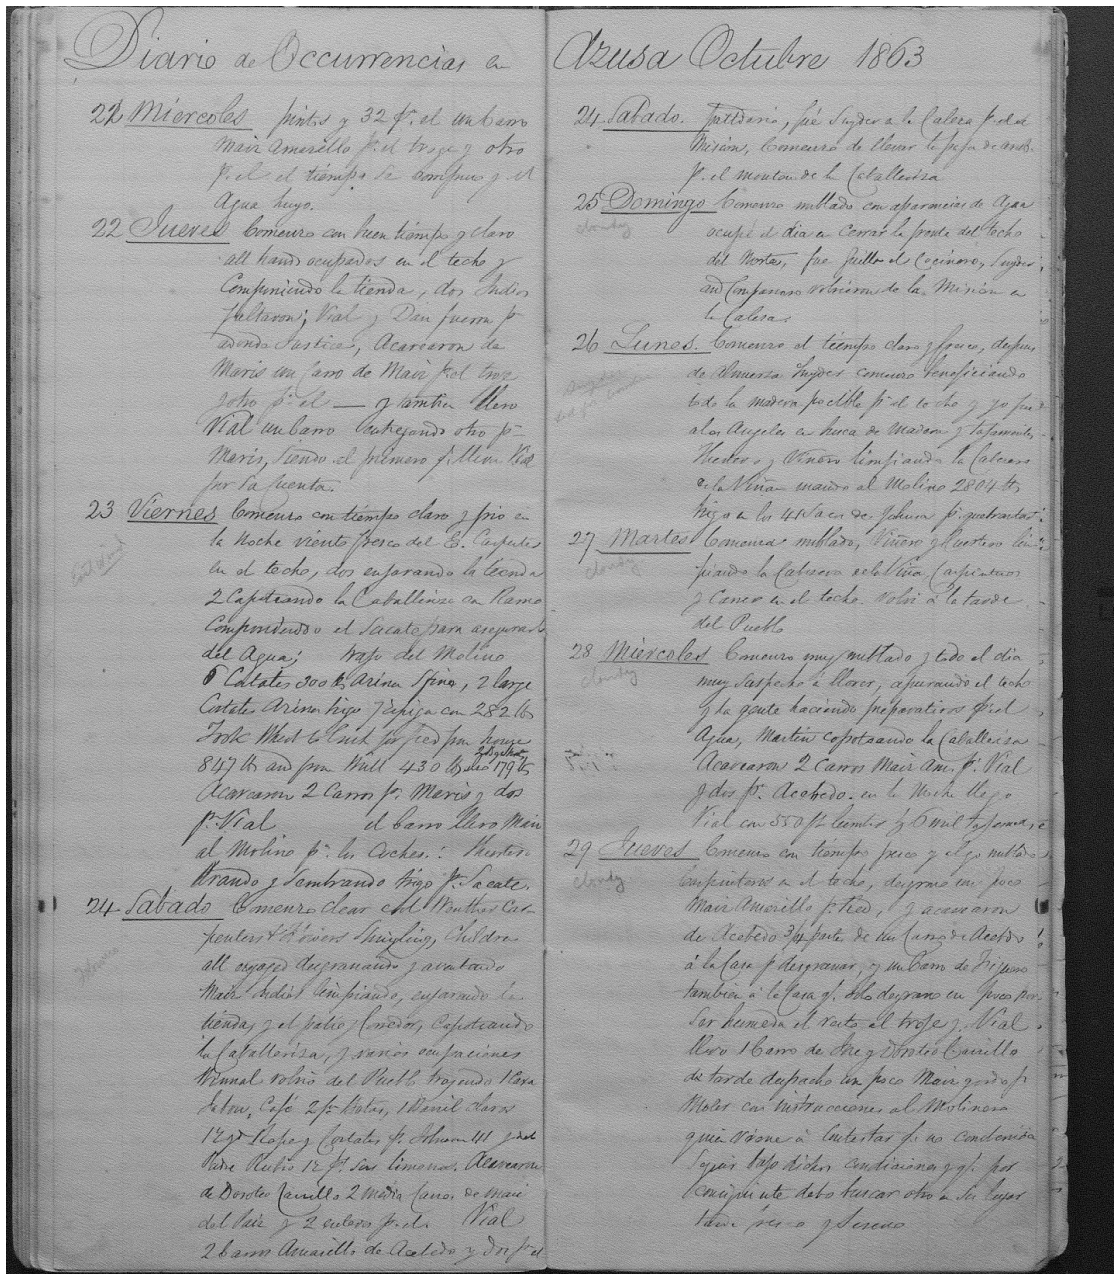 Diario de Occurrencias en
22 Miercoles pintos y 32 pr. el un Carro
Mais Amarillo pr. el troge y otro
pr. el el tiempo se compuso y el
Agua huyo.
22 Jueves Comenzo con buen tiempo y claro
all hands ocupados en el techo y
Componiendo la tienda, dos Indios
faltaron; Vial y Dan fueron pr
adonde Justice, Acarearon de
Maris un Carro de Mais pr el troge
y otro pr. el — y tambien llevo
Vial un Carro entregando otro pr
Maris, Siendo el primero q. lleva Vial
por Su Cuenta.
23 Viernes Comenzo con tiempo claro y frio en
la Noche viento fresco del E. Carpenters
en el techo, dos enjarando la tienda
2 Capoteando la Caballeriza con Ramo
Componiendo el Sacate para asegurarlo
del Agua; trajo del Molino
6 Costales 300 lb Arina Sfina, 2 large
Costales Arina trigo con 282 lbs
Took Wheat to Crush for feed from house
847 lb and from Will 430 lb 179 lb
Acarearon 2 Carros pr. Maris y dos
pr. Vial el Carro llevo Mais
al Molino pr. los Coches.
Arando y Sembrando trigo pr. Sacate.
24 Sabado Comenzo clear cool Weather Car-
penters & Shingling, Children
all engaged desgranando y aventando
Mais Indios limpiando, enjarando la
tienda, y el patio y Corredor, Capoteando
la Caballeriza, y varios ocupaciones
volvio del Pueblo trayendo 1 Caxa
Jabon, Café 2 pr. Botas, 1 Barril clavos
12 yd Ropa y Costales pr. Johnson 41 y del
Padre Rubio 12 pr. Sus limones. Acarearon
de Doroteo Carrillo 2 media Carros de mais
del Pais y 2 enteros pr. el. Vial
2 Carros Amarillo de Acebedo y dos pr el
Azusa Octubre 1863
24 Sabado. fué Snyder a la Calera pr. el
Mision, Comenzo de llevar la paja de
pr. el monton de la Caballeriza
25 Domingo Comenzo nublado con apariencias de Agua
cloudy
ocupé el dia en Cerrar la frente del techo
del Norte, fue el Cocinero, Snyder
and Companeros volvieron de la Mision en
la Calesa.
26 Lunes. Comenzo el tiempo claro y fresco, despues
de Almuerzo Snyder comenzo beneficiando
toda la madera pocible pr el techo y yo fui
a los Angeles en busca de Madera y tajamanil,
Huertero y Viñero limpiando la Cabecera
de la Viña mando al Molino 2804 lbs
trigo en los 41 Sacos de Johnson pr. quebrantar.
27 Martes Comenza nublado, Viñero y Huertero lim-
cloudy
piando la Cabecera de la Viña, Carpinteros
y Caneo en el techo. Volvi á la tarde
del Pueblo
28 Miercoles Comenzo muy nublado y todo el dia
cloudy
muy Sospecho á llover, apurando el techo
y la gente haciendo preparativos pr. el
Agua, Martin capoteando la Caballeriza
Acarearon 2 Carros Mais Am. pr. Vial
y dos pr. Acebedo. en la Noche llego
Vial con 550 ft lumber y 6 mil tajamanil,
29 Jueves Comenzo con tiempo fresco y algo nublado
cloudy
Carpinteros en el techo, desgrane un poco
Mais Amarillo pr. feed, y acarearon
de Acebedo 3/4 parte de un Carro de Acebedo
á la Casa pr desgranar, y un Carro de Figueroa
tambien á la Casa q. solo desgrano un poco por
Ser humeda el resto al troje y. Vial
llevo 1 Carro de Jose y Doroteo Carrillo
de tarde despache un poco Mais gordo pr
Moler con instrucciones al Molinero
quien viene á Contestar q. no condenia
Seguir bajo dichas condiciones y q. por
Consiguiente debo buscar otro en Su lugar
tarde fresco y Sereno